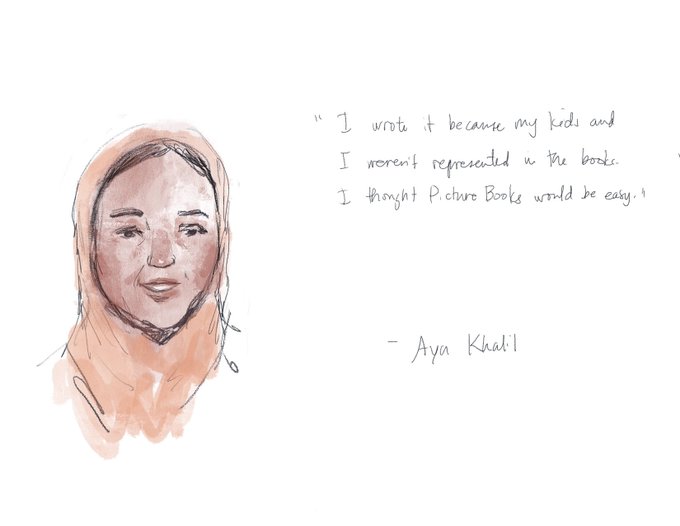 " I wrote it because my kids and
I weren't represented in the books.
I thought Picture Books would be easy."
- Aya Khalil